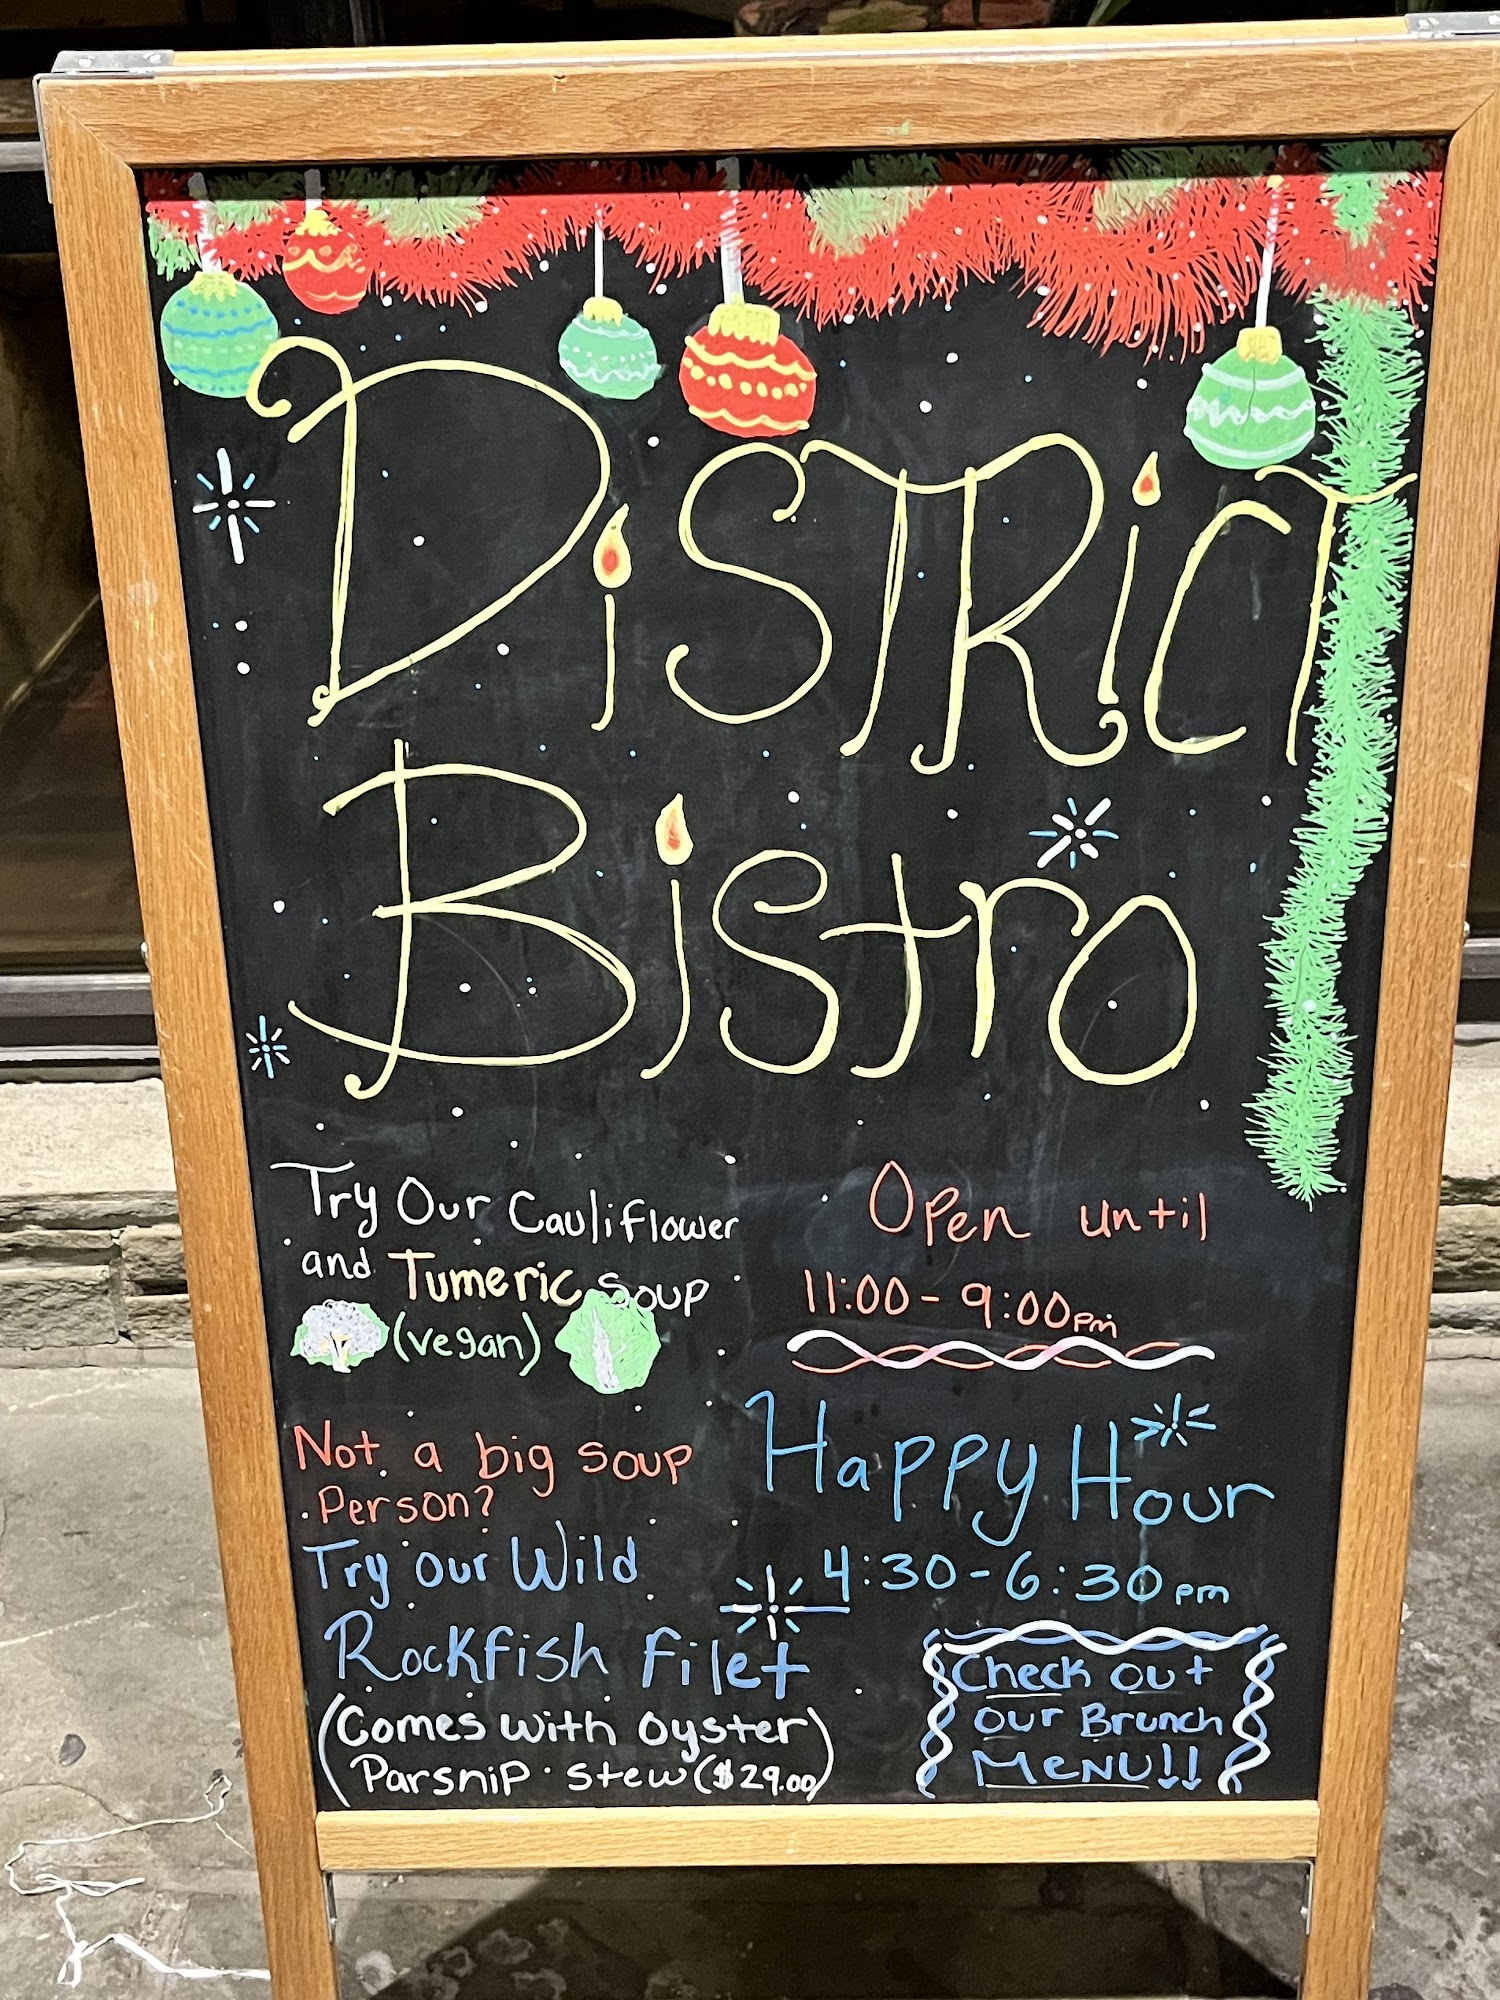 DiSTRicT
Bistro
Try Our Cauliflower
and Tumeric Soup
(vegan)
Not a big soup
Person?
Try our Wild
Rockfish Filet
(Comes with oyster
Parsnip stew ($29.00)
Open until
11:00 - 9:00pm
Happy Hour
4:30 - 6:30pm
Check out
our Brunch
MeNU!!